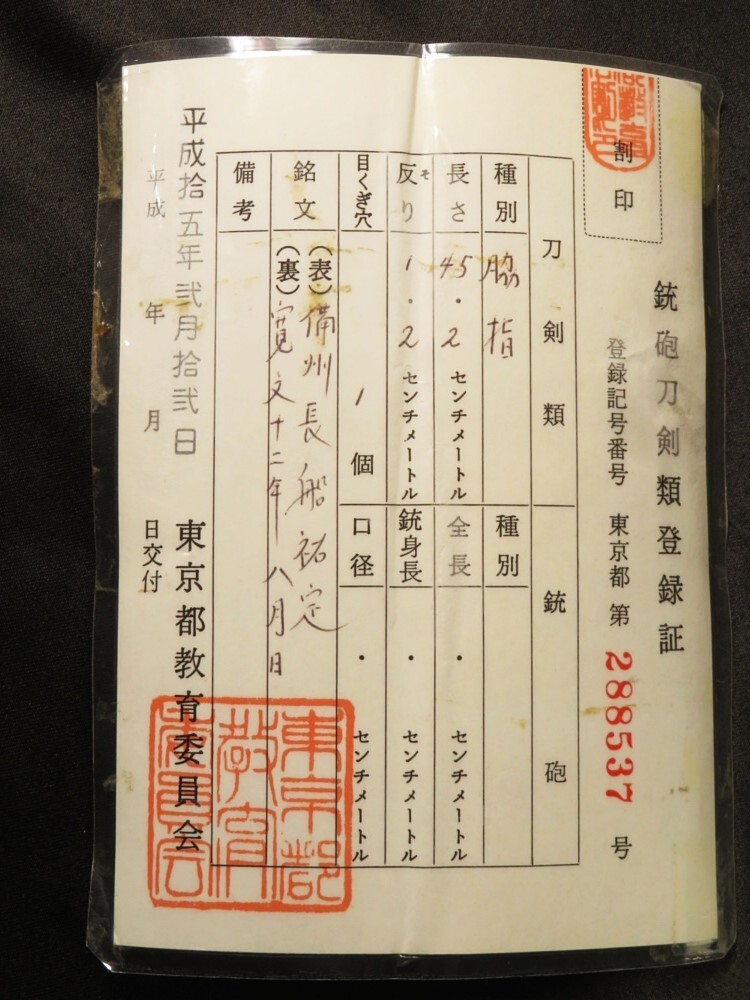 割印
銃砲刀剣類登録証
登録記号番号 東京都 第 288537 号
刀剣類
銃砲
種別 脇指
種別
長さ 45.2 センチメートル
全長 ・ センチメートル
反り 1.2 センチメートル
そ
銃身長 ・ センチメートル
目くぎ穴 1 個
口径 ・ センチメートル
銘文 (表) 備州長船祐定
(裏) 寛文十二年八月日
備考
平成拾五年弐月拾弐日
平成 年 月 日交付
東京都教育委員会
東京都
教育
委員会